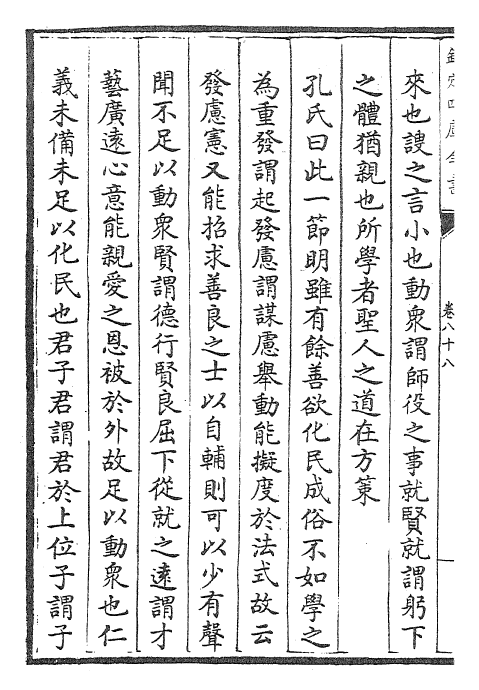 欽定四庫全書
卷八十八
來也謏之言小也動衆謂師役之事就賢就謂躬下
之體猶親也所學者聖人之道在方策
孔氏曰此一節明雖有餘善欲化民成俗不如學之
為重發謂起發慮謂謀慮舉動能擬度於法式故云
發慮憲又能招求善良之士以自輔則可以少有聲
聞不足以動衆賢謂德行賢良屈下從就之逺謂才
藝廣逺心意能親愛之恩被於外故足以動衆也仁
義未備未足以化民也君子君謂君於上位子謂子